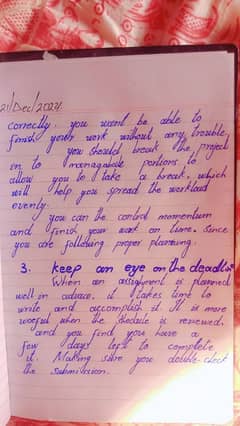 21/Dec/2024
correctly. you want be able to
finish your work without any trouble,
you should break the project
in to managable portions to
allow you to take a break, which
will help you spread the workload
evenly.
you can the control momentum
and finish your work on time. since
you are following proper planning.
3. Keep an eye on the deadline
When an assignment is planned
well in advace, it takes time to
write and accomplish it. It is more
when the shedule is renewed.
and you find you have a
few days left to complete
it. Making sure you double-check
the submission.